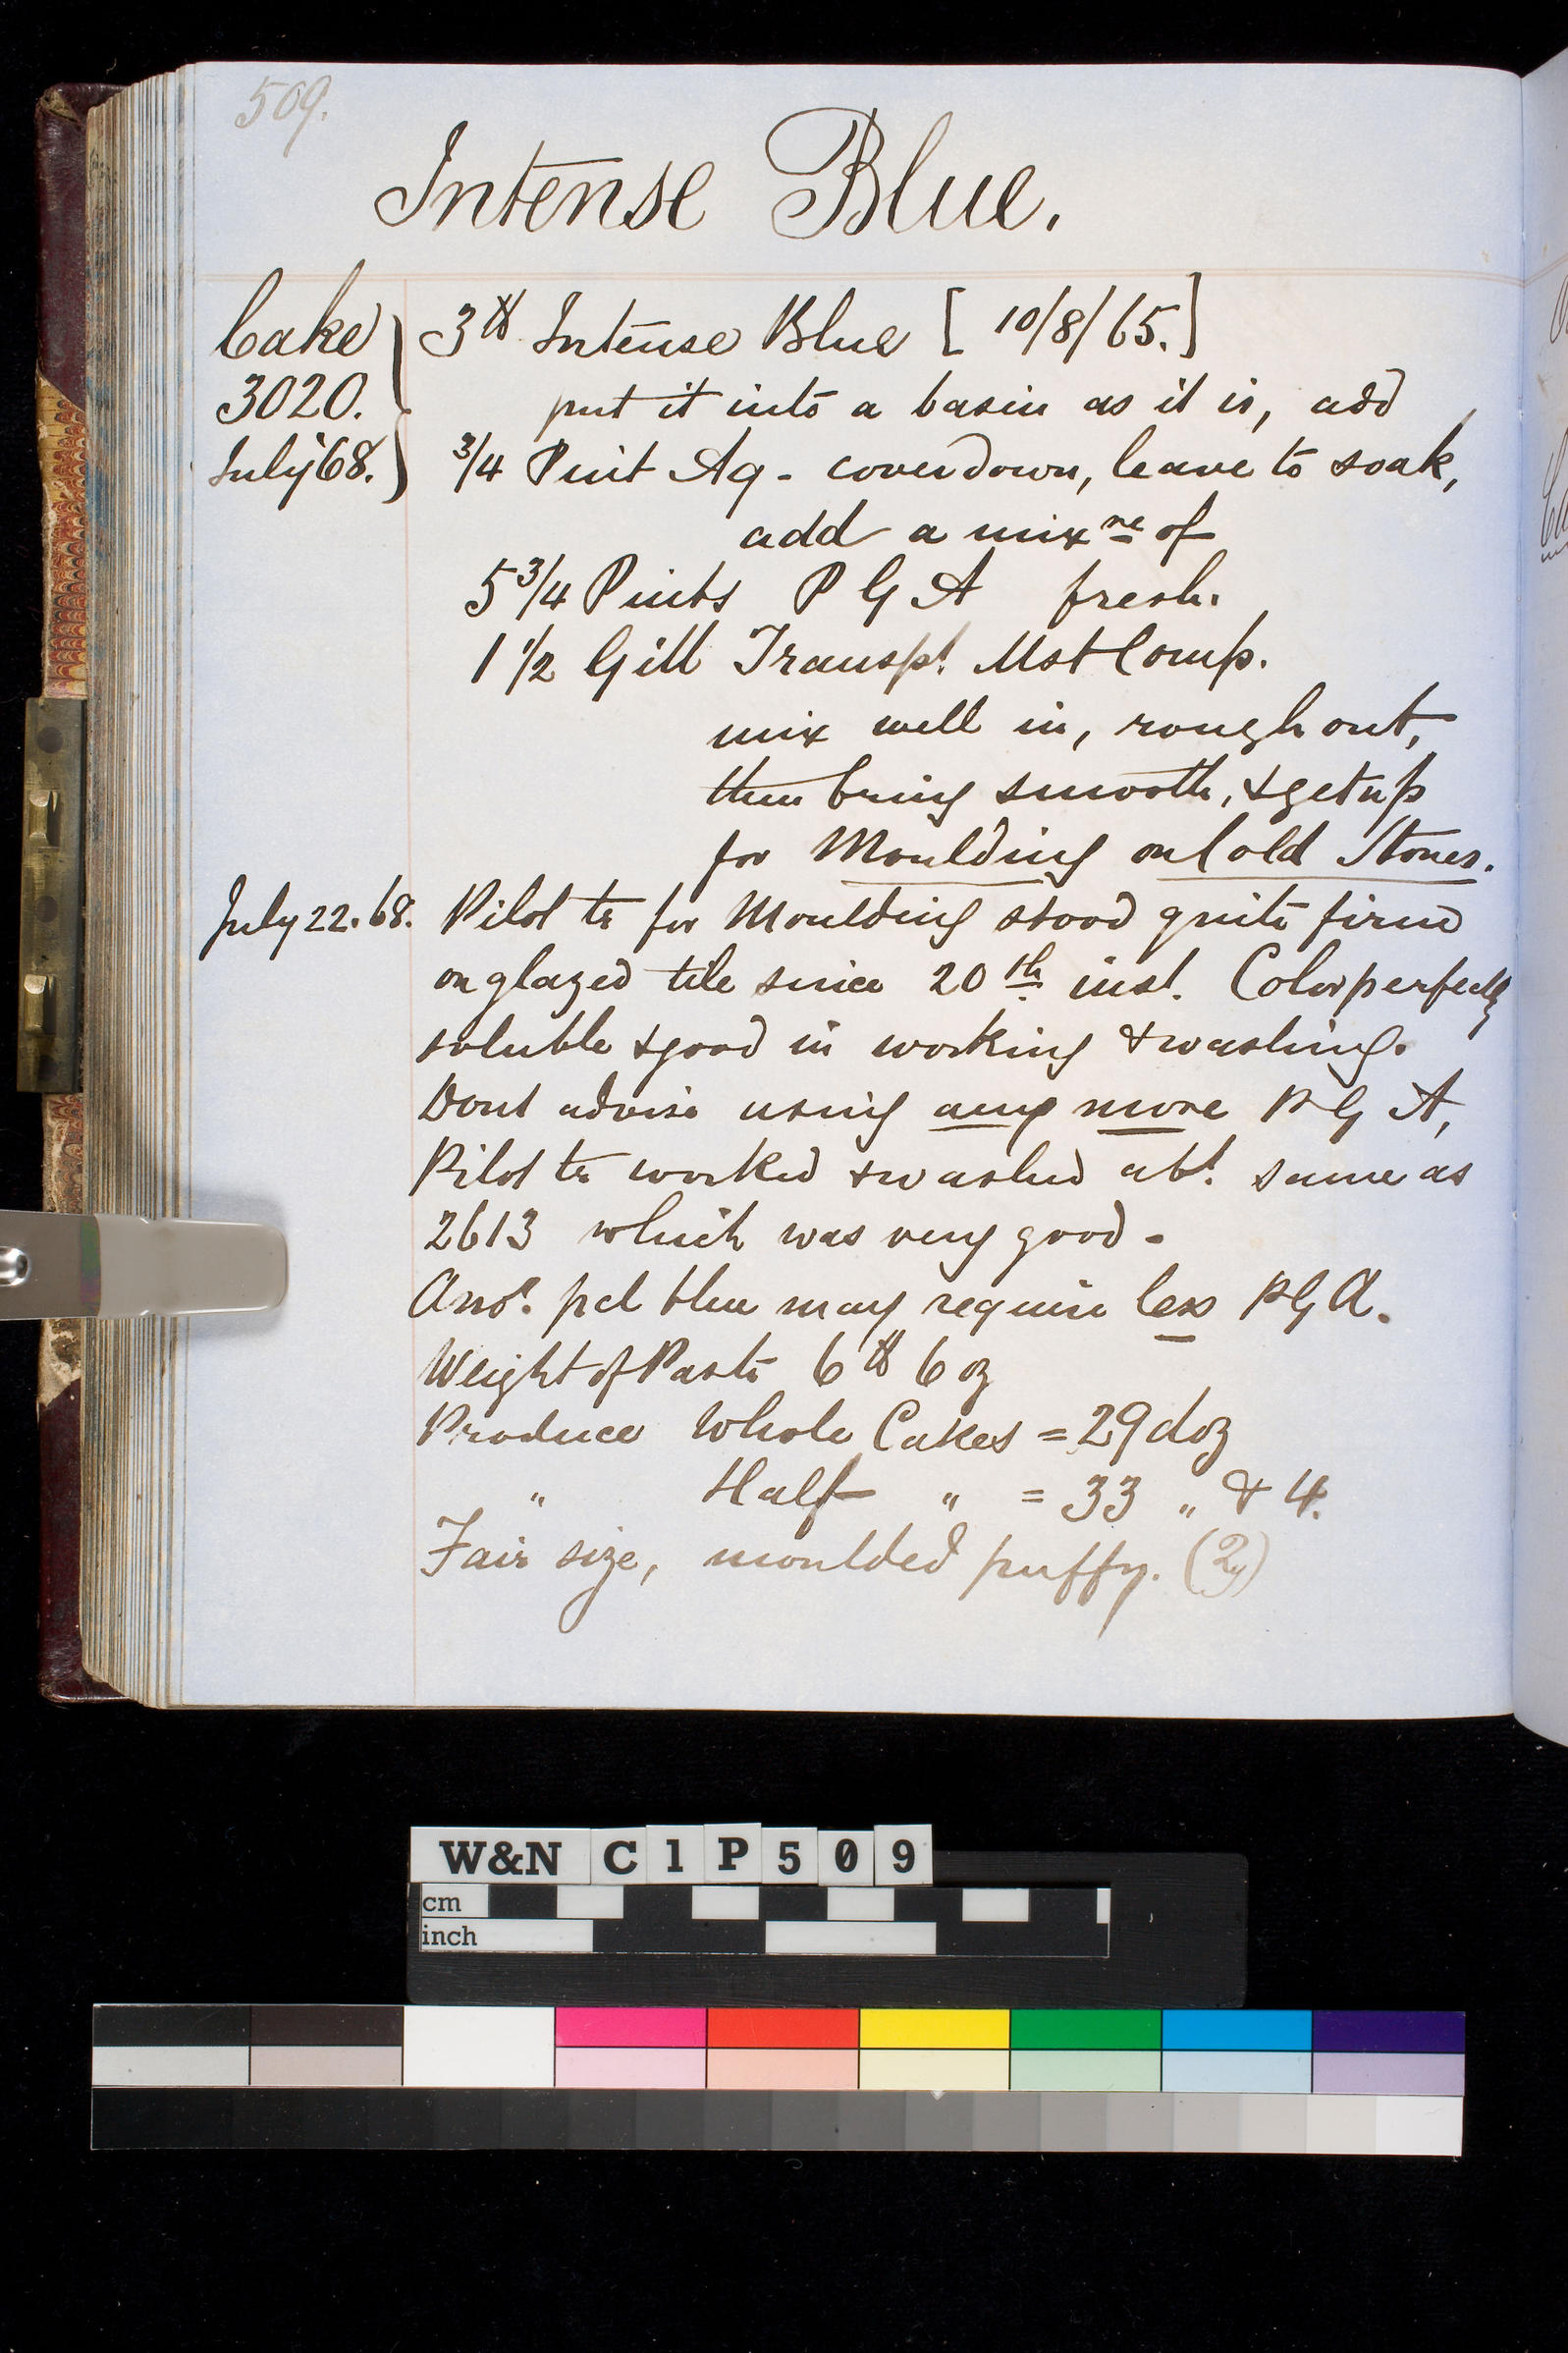 509.
Intense Blue.
Cake 3 ℔ Intense Blue [ 10/8/65.]
3020. put it into a basin as it is, add
July '68. 3/4 Pint Aq - cover down, leave to soak,
add a mixre of
5 3/4 Pints P G A fresh.
1 1/2 Gill Transpt. Mst Comp.
mix well in, rough out,
then bring smooth, & get up
for Moulding on Cold Stones.
July 22. 68. Pilot tr for Moulding stood quite firm
on glazed tile since 20th inst. Color perfectly
soluble & good in working & washing.
Dont advise using any more P G A,
Pilot tr worked & washed abt. same as
2613 which was very good -
Anor. pcl blue may require less P G A.
Weight of Paste 6 ℔ 6 oz
Produce Whole Cakes = 29 doz
" Half " = 33 " & 4.
Fair size, moulded puffy.
W&N C1P509
cm
inch